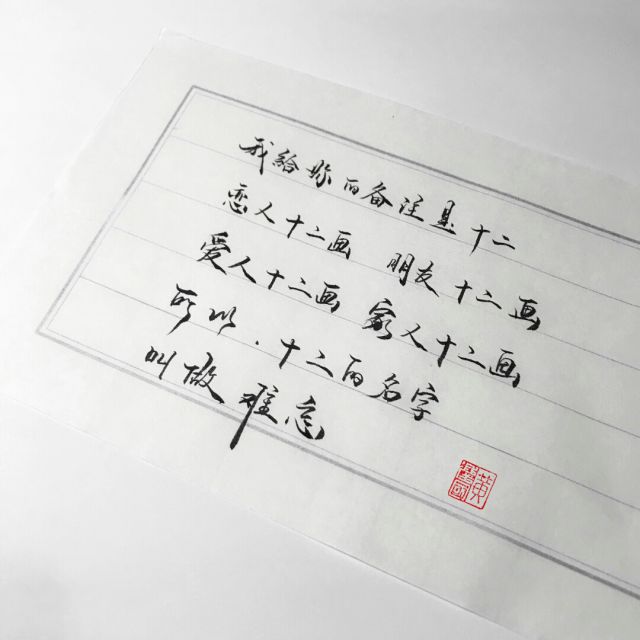 我给你的备注是十二
恋人十二画 朋友十二画
爱人十二画 家人十二画
所以、十二的名字
叫做 难忘